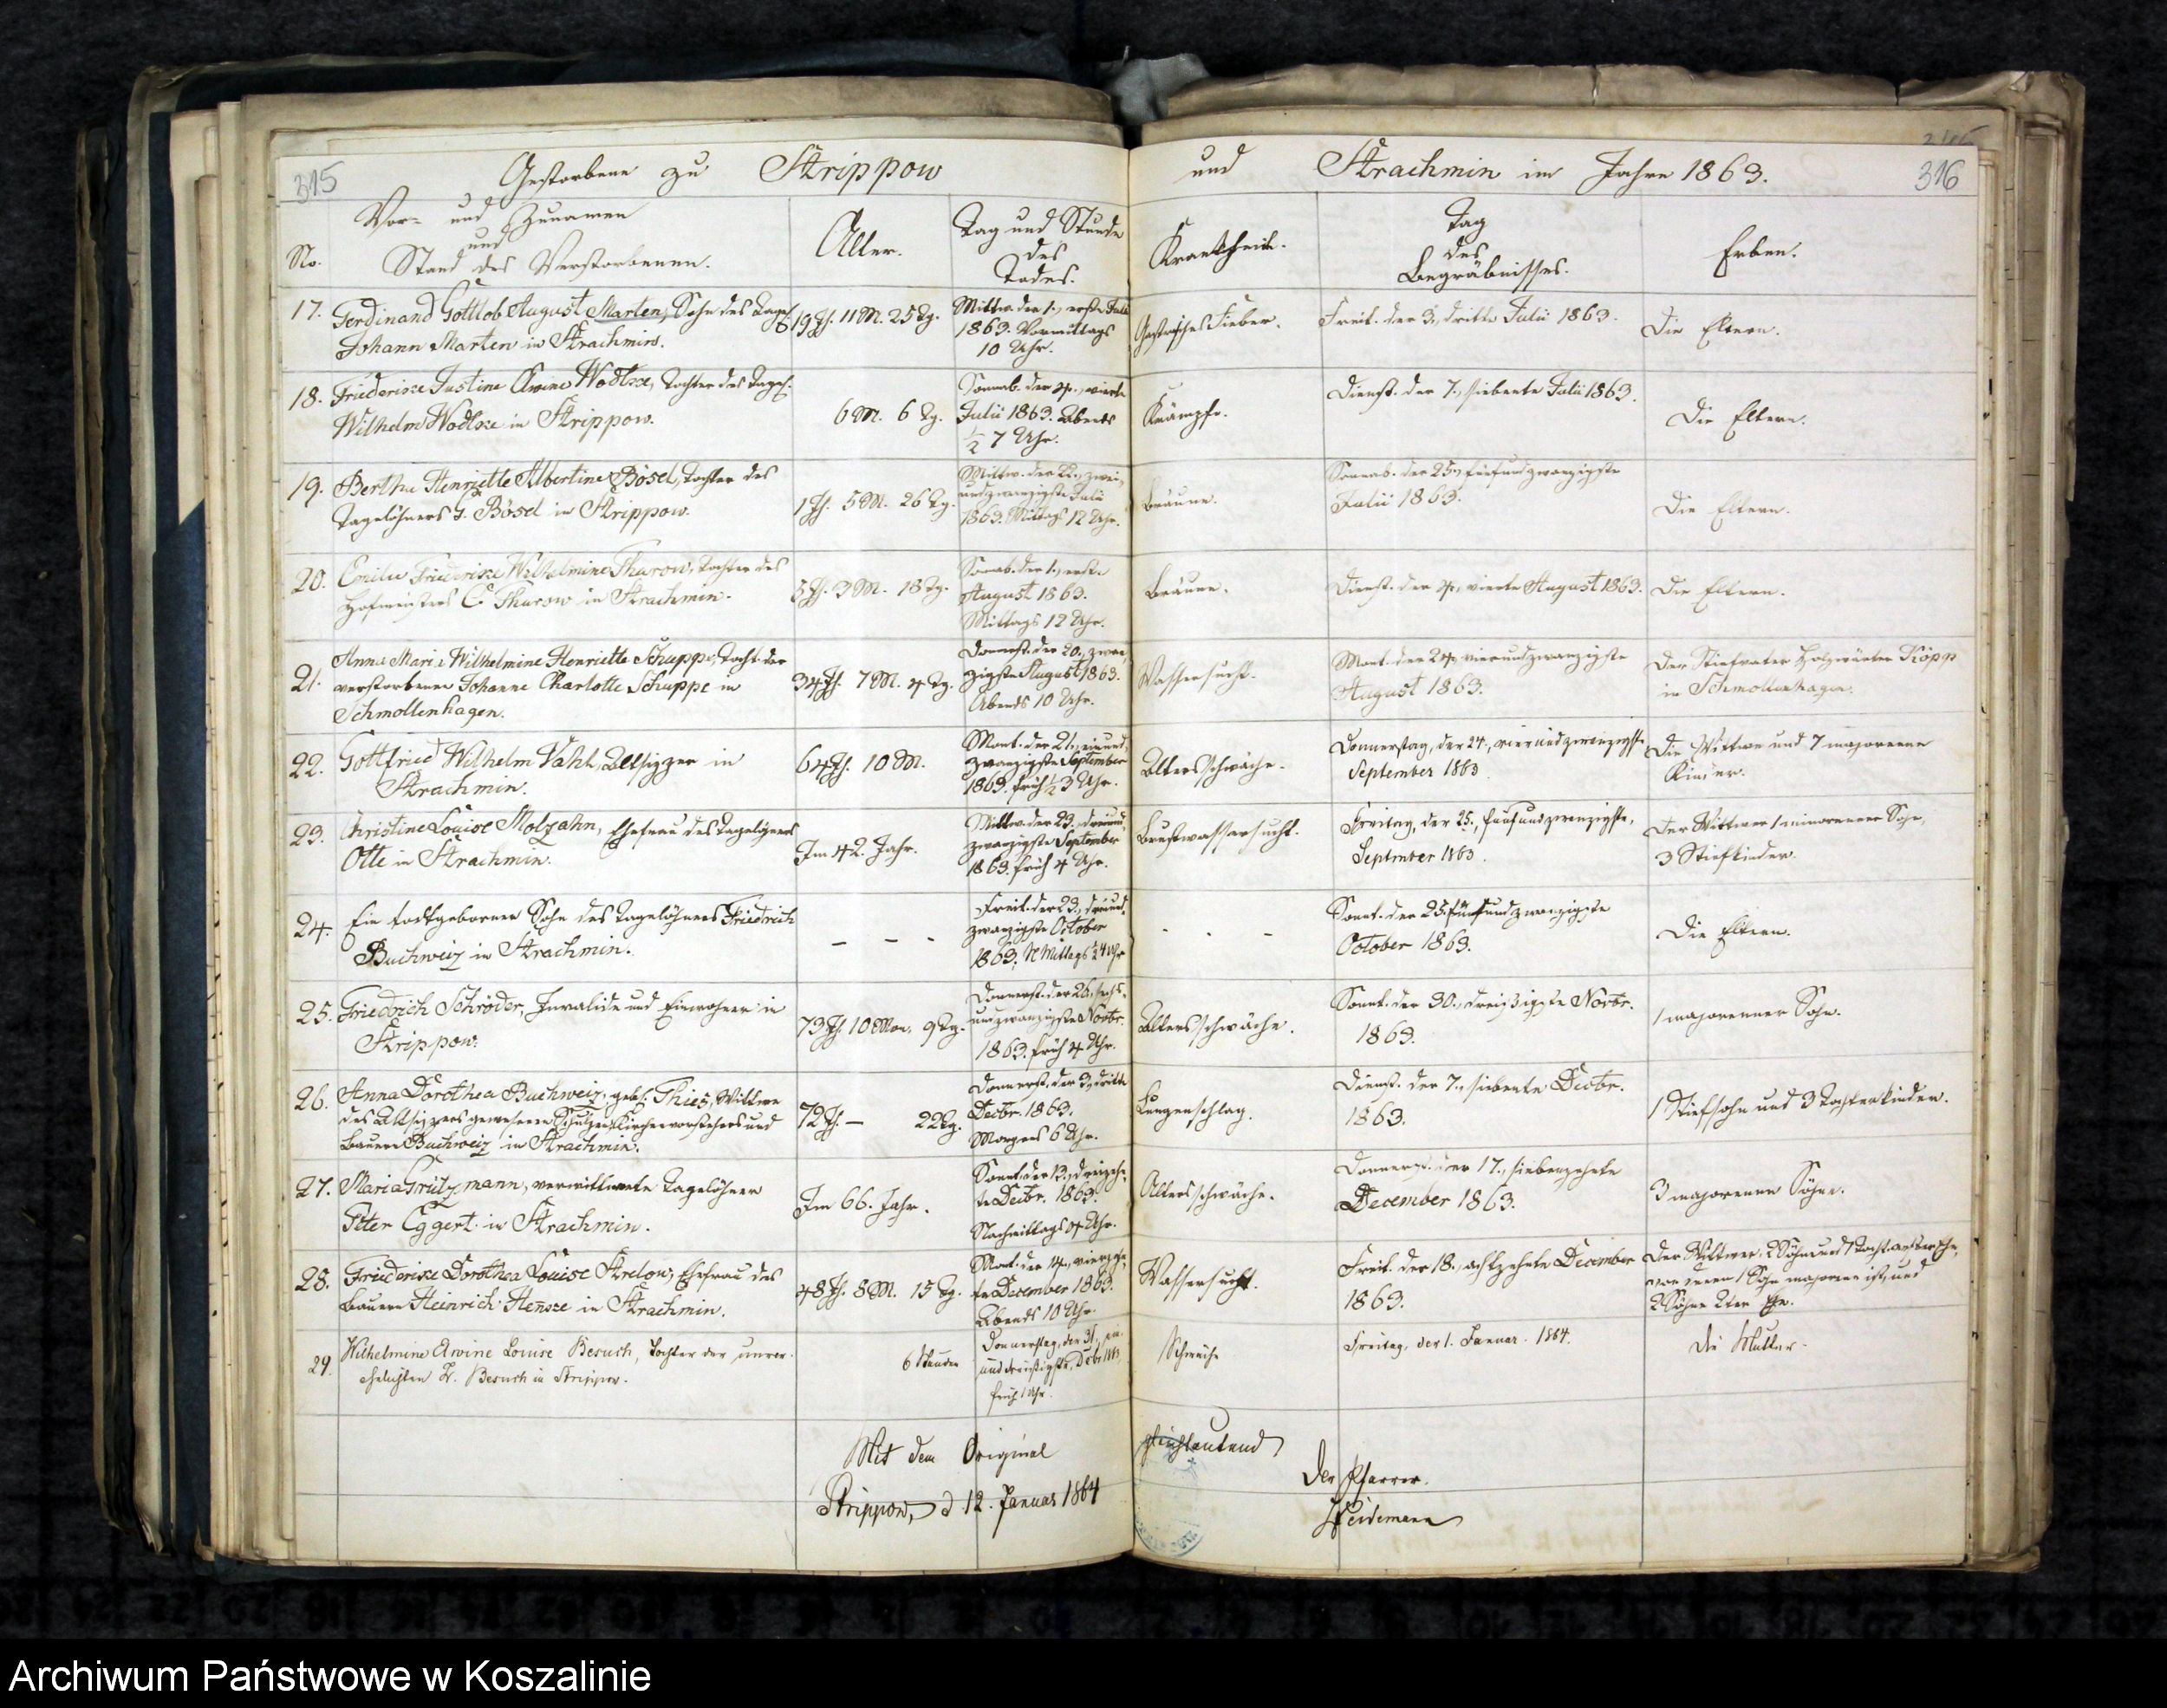 315
Gestorbene zu Strippow und Strachmin im Jahre 1863.
316
No.
Vor- und Zunamen
und
Stand des Verstorbenen.
Alter.
Tag und Stunde
des
Todes.
Krankheit.
Tag
des
Begräbnisses.
Erben.
17.
Ferdinand Gottlob August Marten, Sohn des Tagel.
Johann Marten in Strachmin.
19 J. 11 M. 25 Tg.
Mittw. der 1., erste Julii
1863. Vormittags
10 Uhr.
Gastrisches Fieber.
Freit. der 3., dritte Julii 1863.
Die Eltern.
18.
Friederike Justine Alwine Wodtke, Tochter des Tagel.
Wilhelm Wodtke in Strippow.
6 M. 6 Tg.
Sonnab. der 4., vierte
Julii 1863. Abends
½ 7 Uhr.
Krämpfe.
Dienst. der 7., siebente Julii 1863.
Die Eltern.
19.
Bertha Henriette Albertine Bösel, Tochter des
Tagelöhners G. Bösel in Strippow.
1 J. 5 M. 26 Tg.
Mittw. der 22., zwei-
undzwanzigste Julii
1863. Mittags 12 Uhr.
Bräune.
Sonnab. der 25., fünfundzwanzigste
Julii 1863.
Die Eltern.
20.
Emilie Friederike Wilhelmine Thurow, Tochter des
Hofmeisters C. Thurow in Strachmin.
5 J. 3 M. 18 Tg.
Sonab. der 1., erste
August 1863.
Mittags 12 Uhr.
Bräune.
Dienst. der 4., vierte August 1863.
Die Eltern.
21.
Anna Maria Wilhelmine Henriette Schuppe, Tocht. der
verstorbenen Johanne Charlotte Schuppe in
Schmollenhagen.
34 J. 7 M. 4 Tg.
Donnerst. der 20., zwan-
zigste August 1863.
Abends 10 Uhr.
Wassersucht.
Mont. der 24., vierundzwanzigste
August 1863.
Der Stiefvater Holzwärter Köpp
in Schmollenhagen.
22.
Gottfried Wilhelm Vahl, Altsitzer in
Strachmin.
64 J. 10 M.
Mont. der 21., einund-
zwanzigste September
1863. früh ½ 3 Uhr.
Altersschwäche.
Donnerstag, der 24., vierundzwanzigste
September 1863.
Die Wittwe und 7 majorenne
Kinder.
23.
Christine Louise Molzahn, Ehefrau des Tagelöhners
Otte in Strachmin.
Im 42. Jahr.
Mittw. der 23., dreiund-
zwanzigste September
1863. früh 4 Uhr.
Brustwassersucht.
Freitag, der 25., fünfundzwanzigste,
September 1863.
Der Wittwer, 1 minorenner Sohn,
3 Stiefkinder.
24.
Ein todtgeborner Sohn des Tagelöhners Friedrich
Buchweiz in Strachmin.
- - -
Freit. der 23., dreiund-
zwanzigste October
1863. N Mittags ½ 4 Uhr
- - -
Sonnt. der 25. fünfundzwanzigste
October 1863.
Die Eltern.
25.
Friedrich Schröder, Invalide und Einwohner in
Strippow.
73 J. 10 Mon. 9 Tg.
Donnerst. der 26., sechs-
undzwanzigste Novbr.
1863. früh 4 Uhr.
Altersschwäche.
Sonnt. der 30., dreißigste Novbr.
1863.
1 majorenner Sohn.
26.
Anna Dorothea Buchweiz, geb. Thies, Wittwe
des Altsitzers gewesenen Schulzen, Kirchenvorstehers und
Bauern Buchweiz in Strachmin.
72 J. – 22 Tg.
Donnerst. der 3., dritte
Decbr. 1863.
Morgens 6 Uhr.
Lungenschlag.
Dienst. der 7., siebente Decbr.
1863.
1 Stiefsohn und 3 Tochterkinder.
27.
Maria Grützmann, verwittwete Tagelöhner
Peter Eggert in Strachmin.
Im 66. Jahr.
Sonnt. der 13., dreizehn-
te Decbr. 1863.
Nachmittags 4 Uhr.
Altersschwäche.
Donnerst. der 17., siebenzehnte
December 1863.
3 majorenne Söhne.
28.
Friederike Dorothea Louise Strelow, Ehefrau des
Bauern Heinrich Henske in Strachmin.
48 J. 8 M. 15 Tg.
Mont. der 14., vierzehn-
te December 1863.
Abends 10 Uhr.
Wassersucht.
Freit. der 18., achtzehnte December
1863.
Der Wittwer, 2 Söhne und 1 Tocht. erster Ehe,
von denen 1 Sohn majorenn ist, und
2 Söhne 2ter Ehe.
29.
Wilhelmine Alwine Louise Besuch, Tochter der unver-
ehelichten W. Besuch in Strippow.
6 Stunden
Donnerstag, der 31., ein-
unddreißigste, Decbr 1863,
früh 1 Uhr.
Schwäche
Freitag, der 1. Januar 1864.
Die Mutter.
Mit dem Original gleichlautend
Strippow, d 12. Januar 1864
Der Pfarrer.
Weidemann
Archiwum Państwowe w Koszalinie